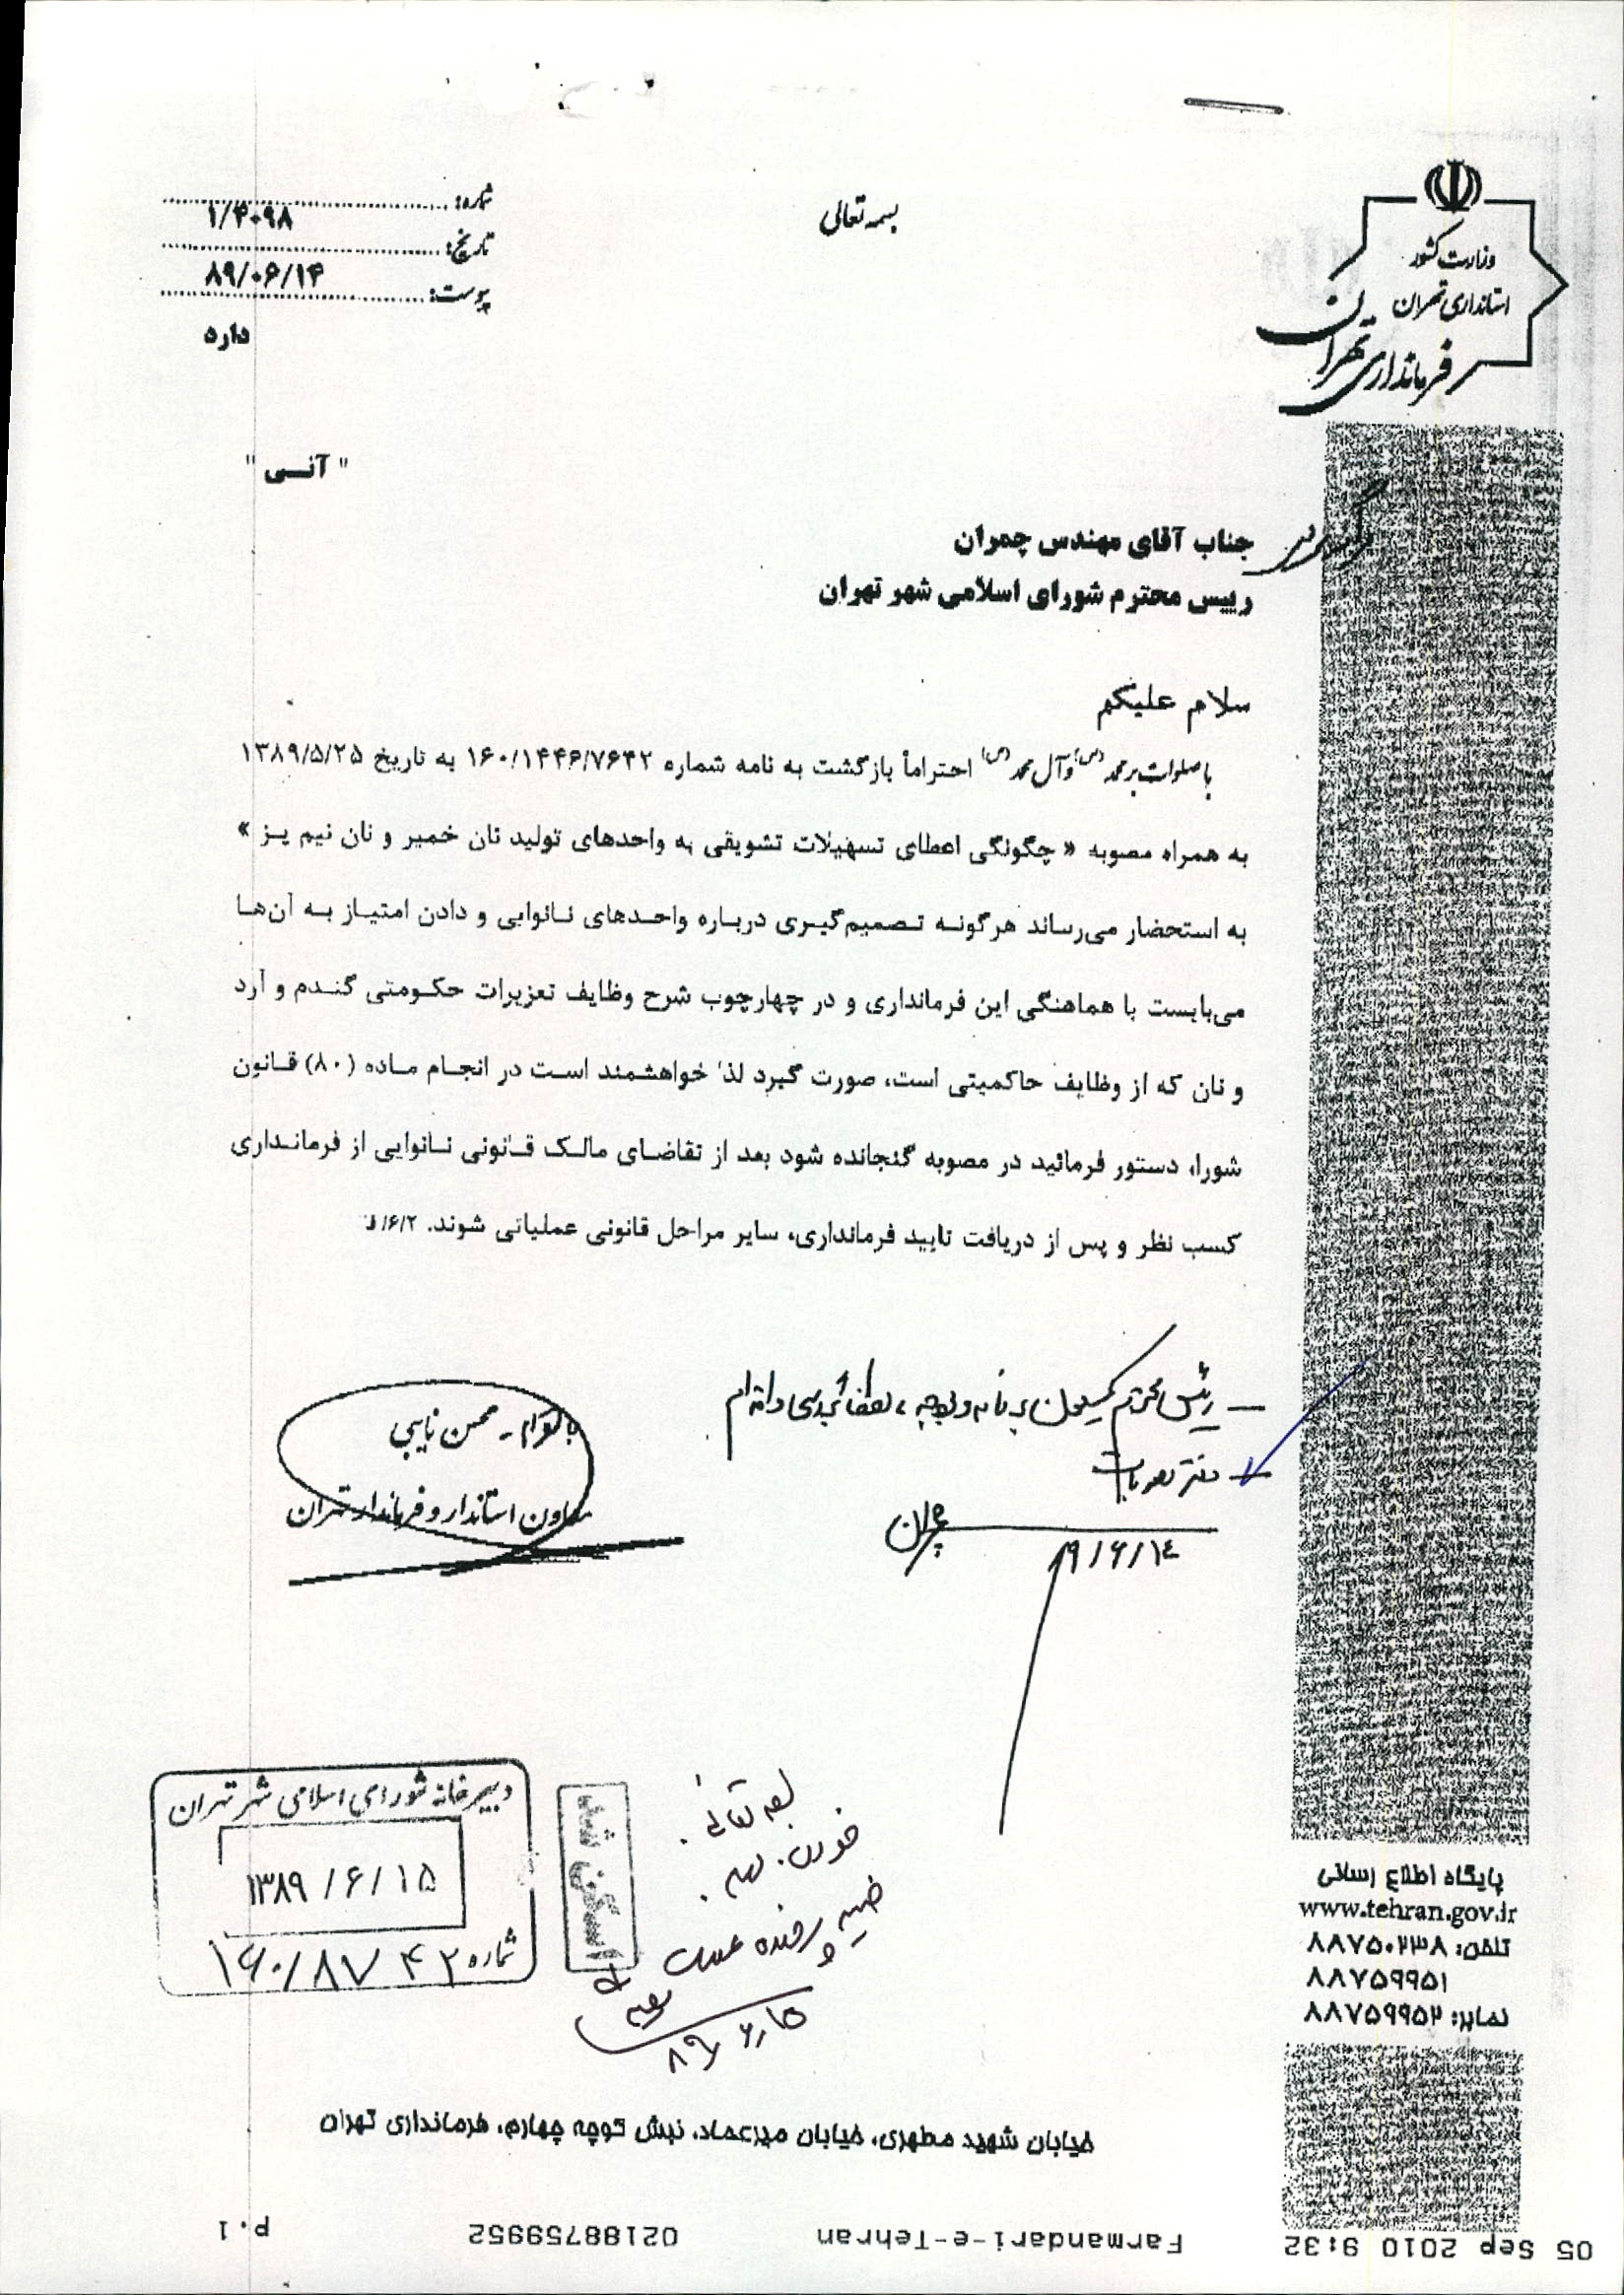 بسمه تعالی
وزارت کشور
استانداری تهران
فرمانداری تهران
شماره:
۱/۴۰۹۸
تاریخ:
۸۹/۰۶/۱۴
پیوست:
دارد
" آنــی "
جناب آقای مهندس چمران
رییس محترم شورای اسلامی شهر تهران
سلام علیکم
با صلوات بر محمد (ص) و آل محمد (ص) احتراماً بازگشت به نامه شماره ۱۶۰/۱۴۴۶/۷۶۴۲ به تاریخ ۱۳۸۹/۵/۲۵
به همراه مصوبه « چگونگی اعطای تسهیلات تشویقی به واحدهای تولید نان خمیر و نان نیم پز »
به استحضار می‌رساند هرگونه تصمیم‌گیری درباره واحدهای نانوایی و دادن امتیاز به آن‌ها
می‌بایست با هماهنگی این فرمانداری و در چهارچوب شرح وظایف تعزیرات حکومتی گندم و آرد
و نان که از وظایف حاکمیتی است، صورت گیرد لذا خواهشمند است در انجام ماده (۸۰) قانون
شورا، دستور فرمائید در مصوبه گنجانده شود بعد از تقاضای مالک قانونی نانوایی از فرمانداری
کسب نظر و پس از دریافت تایید فرمانداری، سایر مراحل قانونی عملیاتی شوند. ۶/۲/
– رئیس محترم کمیسیون برنامه و بودجه، لطفا بررسی و اقدام
– دفتر مصوبات
چمران
۸۹/۶/۱۴
محسن نایبی
معاون استاندار و فرماندار تهران
دبیرخانه شورای اسلامی شهر تهران
۱۳۸۹/۶/۱۵
شماره ۱۶۰/۸۷۴۲
اسکن شد
بسمه تعالی
ضمیمه پرونده
۸۹/۶/۱۵
پایگاه اطلاع رسانی
www.tehran.gov.ir
تلفن: ۸۸۷۵۰۲۳۸
۸۸۷۵۹۹۵۱
نمابر: ۸۸۷۵۹۹۵۲
خیابان شهید مطهری، خیابان میرعماد، نبش کوچه چهارم، فرمانداری تهران
05 Sep 2010 9:32 Farmandari-e-Tehran 02188759952 p.1